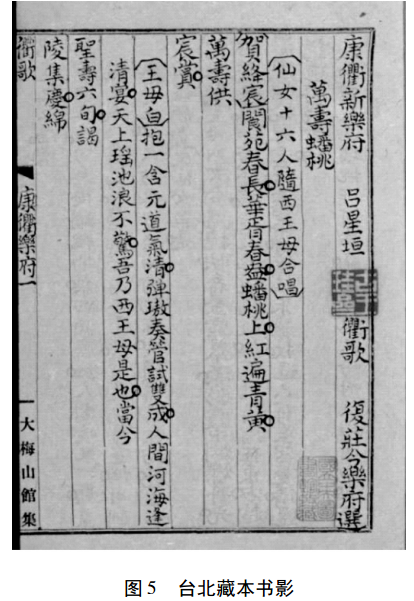 康衢新樂府 呂星垣 衢歌 復莊今樂府選
萬壽蟠桃
仙女十六人隨西王母合唱
賀絳宸閬苑春長華胥春益蟠桃上紅遍青黄
萬壽供
宸賞
王母白抱一含元道氣清彈璈奏管試雙成人間河海逢
清宴天上瑶池浪不驚吾乃西王母是也當今
聖壽六旬謁
陵集慶綿
衢歌 康衢樂府一 一 大梅山館集
图5 台北藏本书影